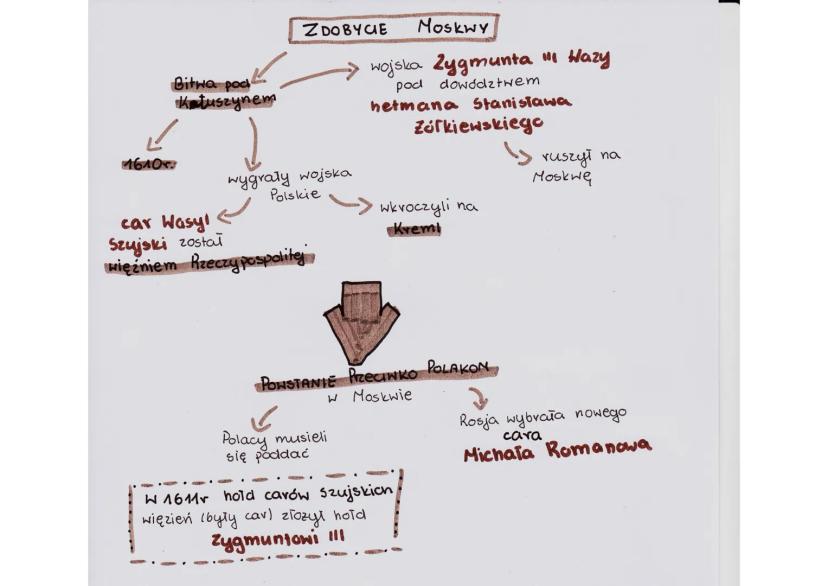 ZDOBYCIE MOSKWY
Bitwa pod
Kłuszynem
wojska Zygmunta III Wazy
pod dowództwem
hetmana Stanisława
Żółkiewskiego
1610r.
ruszył na
Moskwę
wygrały wojska
Polskie
wkroczyli na
Kreml
car Wasyl
Szujski został
więźniem Rzeczypospolitej
POWSTANIE PRZECIWKO POLAKOM
w Moskwie
Polacy musieli
się poddać
Rosja wybrała nowego
cara
Michała Romanowa
W 1611r hołd carów Szujskich
więzień (były car) złożył hołd
Zygmuntowi III